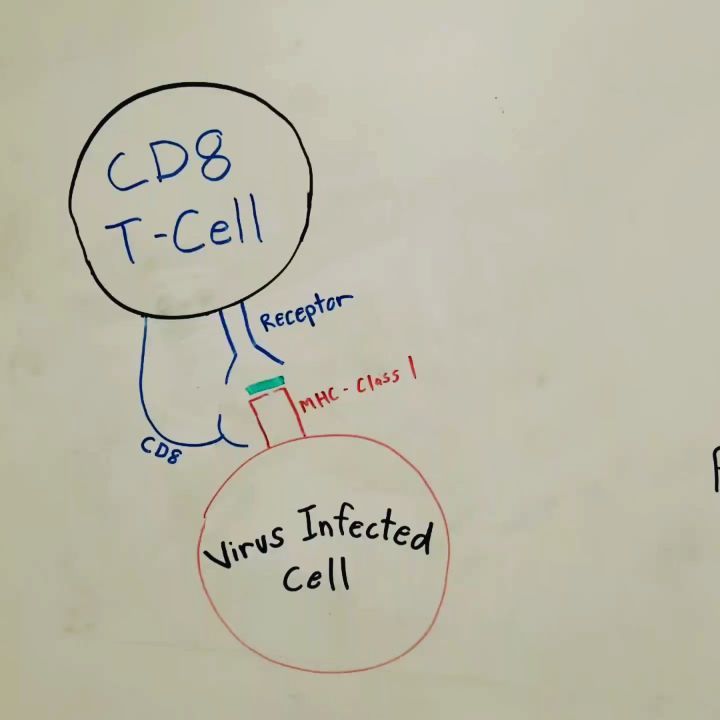 CD8
T-Cell
Receptor
MHC-Class 1
CD8
Virus Infected
Cell